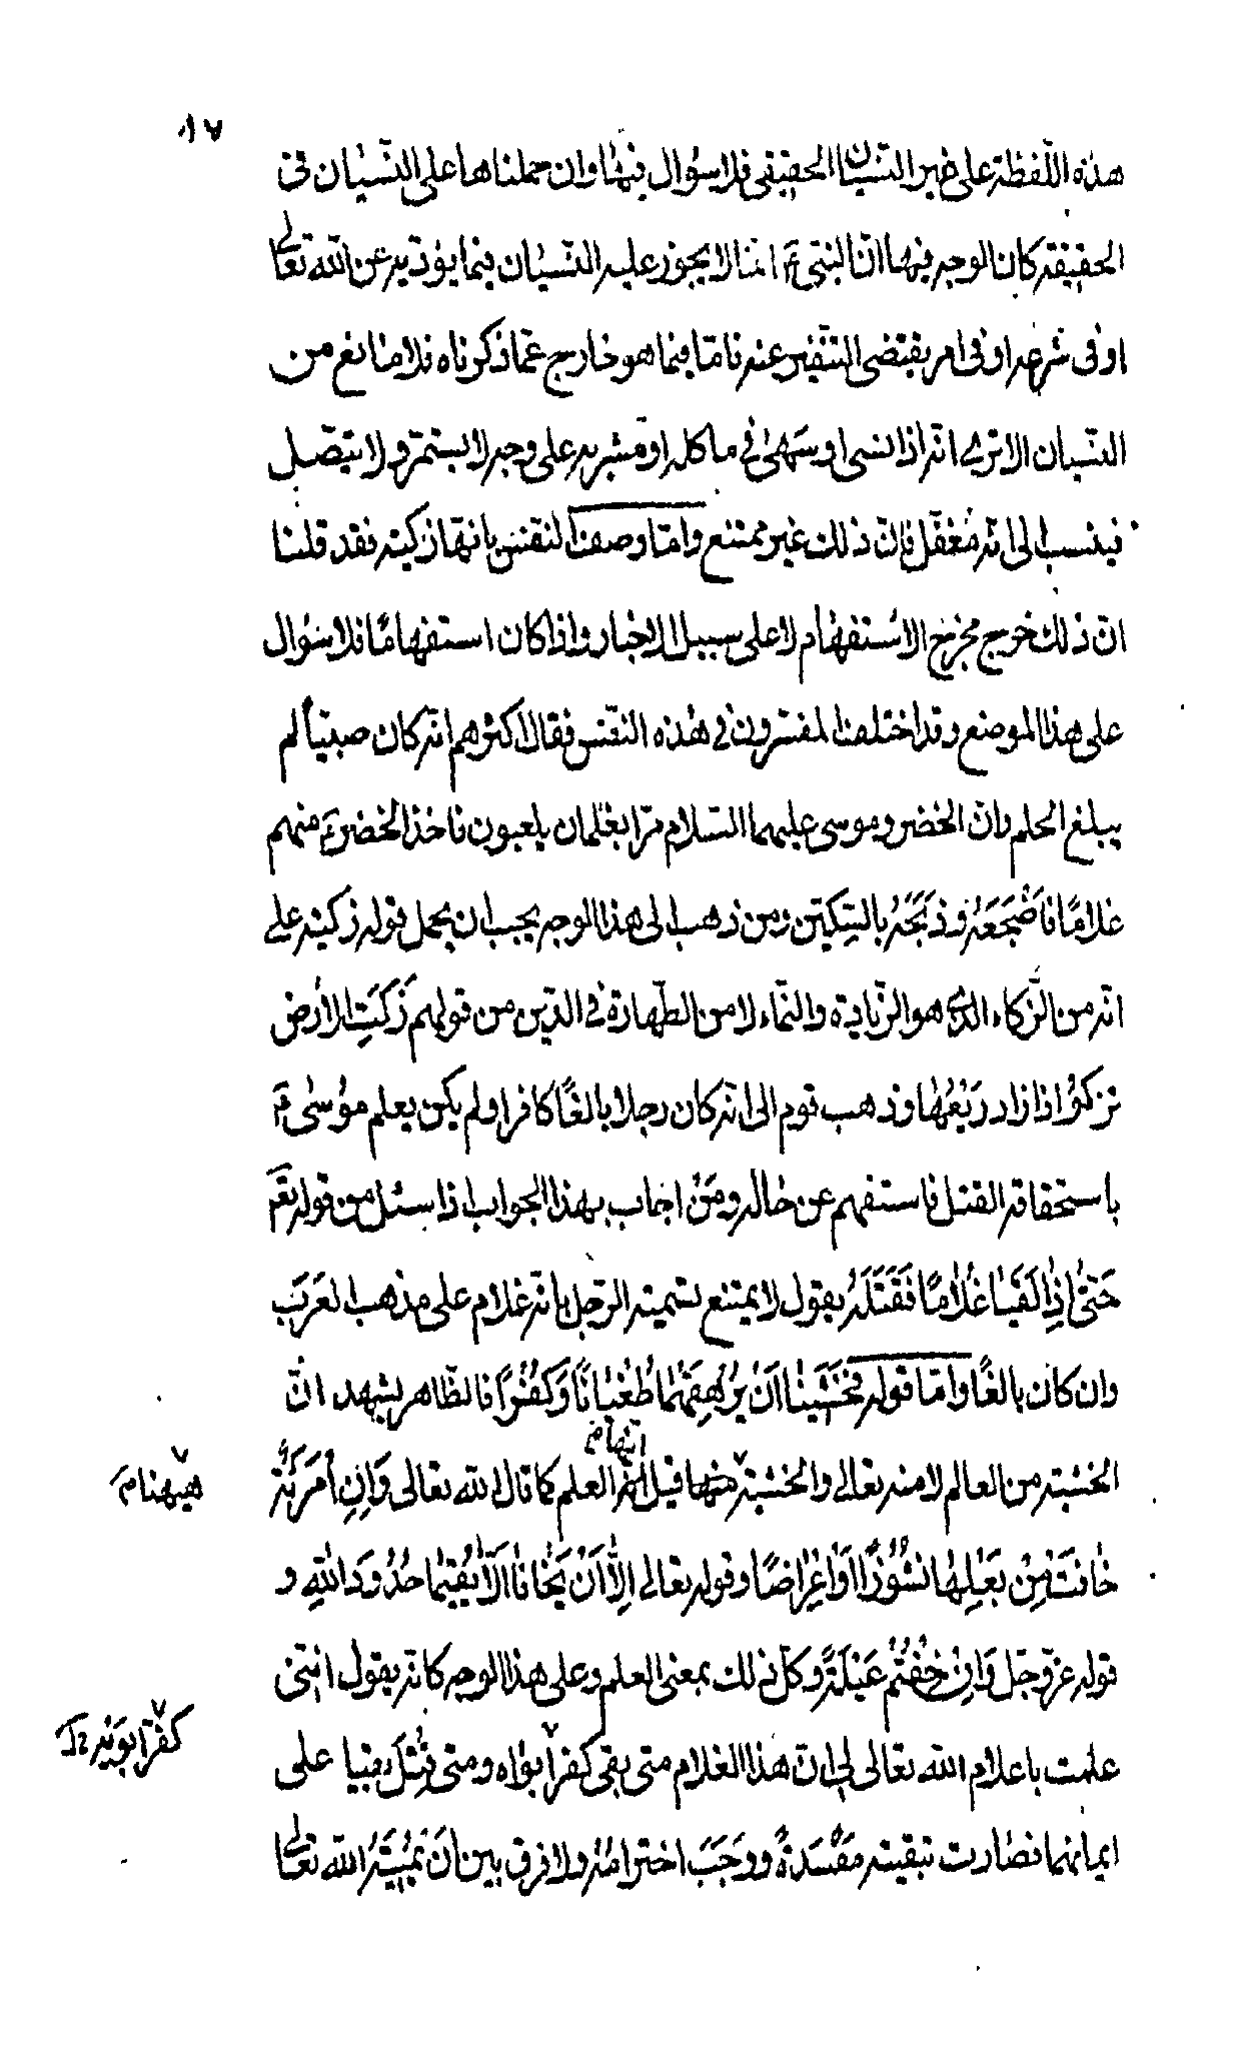 ٨٧
هذه اللّفظة على غير النسيان الحقيقى فلا سؤال فيها وان حملناها على النّسيان فى
الحقيقة كان الوجه فيها انّ النبىّ ع انما لا يجوز عليه النّسيان فيما يؤديه عن الله تعالى
او فى شرعه او فى امر يقتضى التنفير عنه فامّا فيما هو خارج عمّا ذكرناه فلا مانع من
النّسيان الا ترى انّه اذا نسى او سهى فى ماكله او مشربه على وجه لا يستمرّ ولا يتّصل
فينسب الى انّه مغفّل فانّ ذلك غير ممتنع وامّا وصف النّفس بانّها زكية فقد قلنا
انّ ذلك خرج مخرج الاستفهام لا على سبيل الاخبار واذا كان استفهامًا فلا سؤال
على هذا الموضع وقد اختلف المفسّرون فى هذه النّفس فقال اكثرهم انّه كان صبيّاً لم
يبلغ الحلم وانّ الخضر وموسى عليهما السّلام مرّا بغلمان يلعبون فاخذ الخضر ع منهم
غلامًا فاَضْجَعَهُ وذَبَحَهُ بالسّكّين ومن ذهب الى هذا الوجه يجب ان يحمل قوله زكية على
انّه من الزّكاء الّذى هو الزّيادة والنّماء لا من الطّهارة فى الدّين من قولهم زَكَتِ الارض
تزكوُ اذا زاد رَيْعُها وذهب قوم الى انّه كان رجلا بالغًا كافرا ولم يكن يعلم موسى ع
باستحقاقه القتل فاستفهم عن حاله ومَنْ اجاب بهذا الجواب اذا سئل من قوله تعم
حَتّىٰ اِذٰا لَقِيٰا غُلٰامًا فَقَتَلَهُ يقول لا يمتنع تسمية الرّجل بانّه غلام على مذهب العَرَبَ
وان كان بالغًا وامّا قوله فَخَشِينٰا اَنْ يُرْهِقَهُمٰا طُغْيٰانًا وَكُفْرًا فالظّاهر يشهد انّ
الخشية من العالم لا منه تعالى والخشية منها قيل انها م العلم كما قال الله تعالى وَاِنِ امْرَئَةٌ
هيهنا م
خٰافَتْ مِنْ بَعْلِهٰا نُشُوزًا اَوْ اِعْرٰاضًا وقوله تعالى اِلّٰا اَنْ يَخٰافٰا اَلّٰا يُقيمٰا حُدُودَ اللهِ و
قوله عزّ وجلّ وَاِنْ خِفْتُمْ عَيْلَةً وكلّ ذلك بمعنى العلم وعلى هذا الوجه كانّه يقول انّنى
علمت باعلام الله تعالى لى ان هذا الغلام متى بقى كفر ابواه ومتى قُتِلَ بقيا على
كفر ابويه
ايمانهما فصارت تبقيته مَفْسَدَةً ووَجَبَ اخترامُهُ ولا فرق بين اَنْ يُميتَهُ الله تعالى